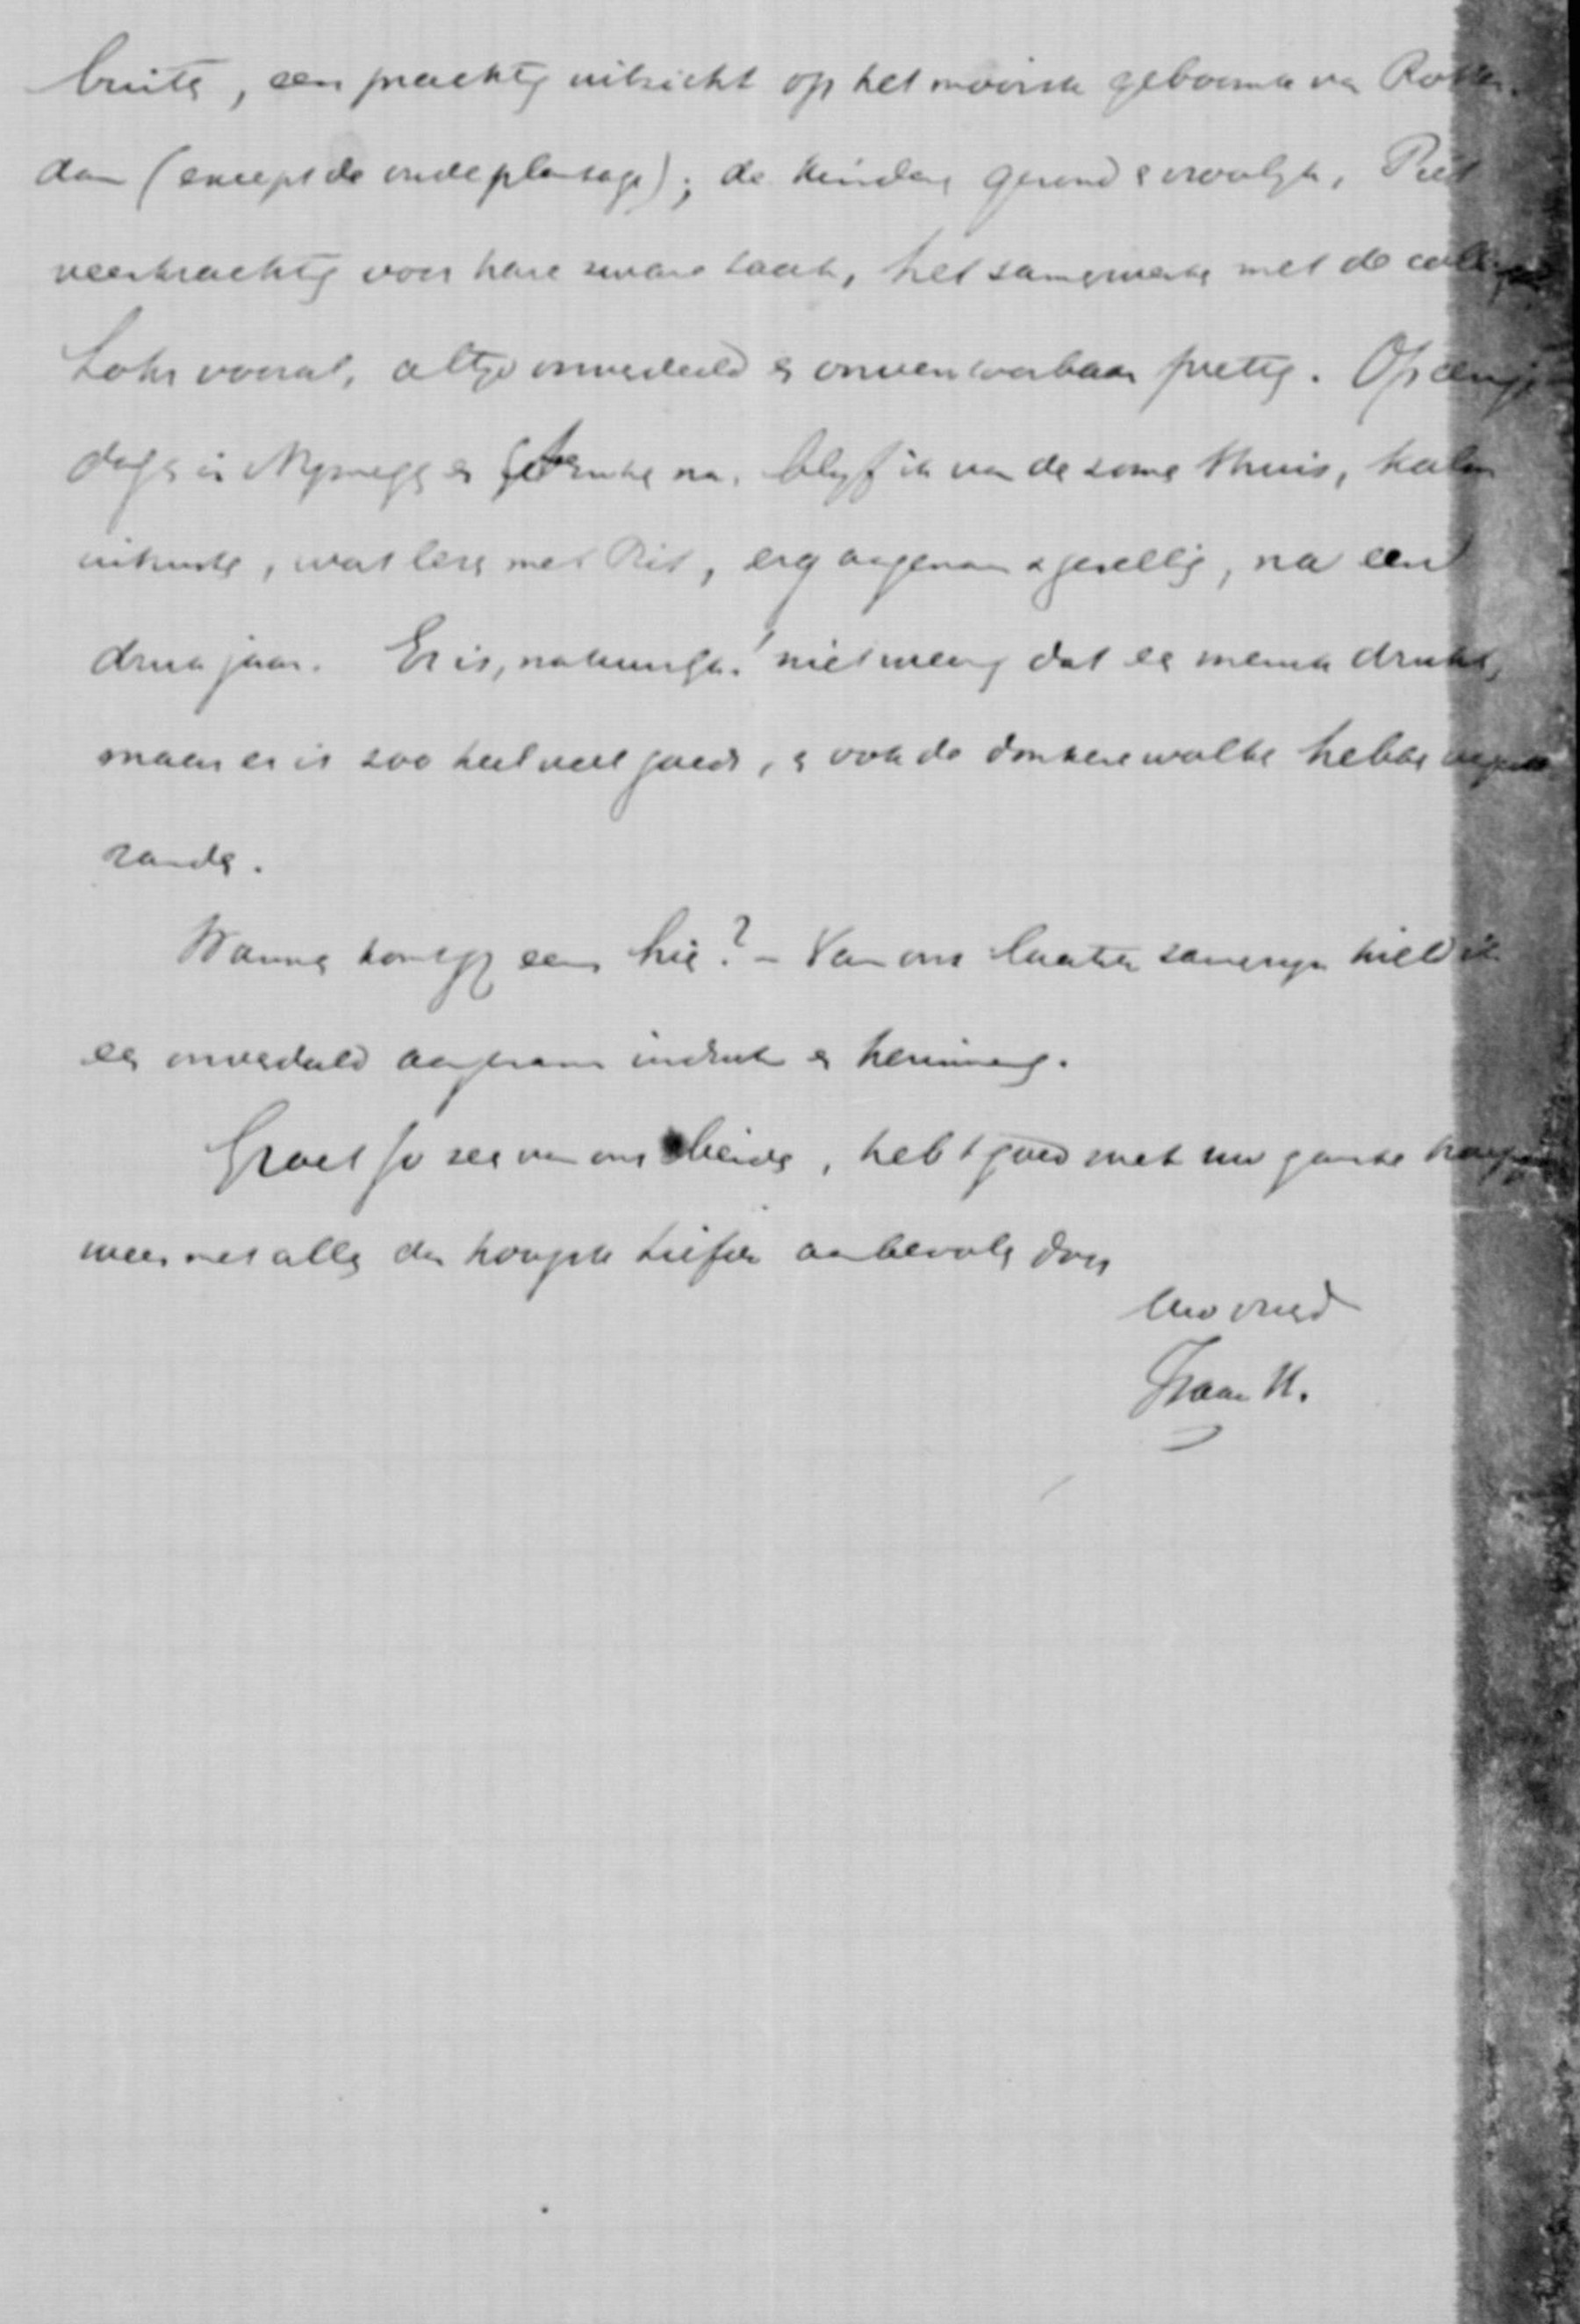 buiten, een prachtig uitzicht op het mooiste geboomte van Rotter-
dam (excepté de oude plantage); de kinderen gezond en vroolijk, Piet
veerkrachtig voor hare zware taak, het samenwerken met de collega's
Lohr vooral, altijd onverdeeld en onverstoorbaar prettig. Op enige
dagen in Nymegen en na, blyf ik van de zomer thuis, kalm
uitrusten, wat lezen met Piet, erg aangenaam en gezellig, na een
druk jaar. Er is, natuurlijk! niet weinig dat een mensch drukt,
maar er is zoo heel veel goeds, en ook de donkere wolken hebben
randen.
Wanneer komt gij eens hier? – Van ons laatste samenzijn hield ik
een onverdeeld aangenaam indruk en herinnering.
Groet Jo zeer van ons beiden, hebt 't goed met uw gansche
wees met allen den hoogste Liefde aanbevolen door
Uw vriend
Fraan H.